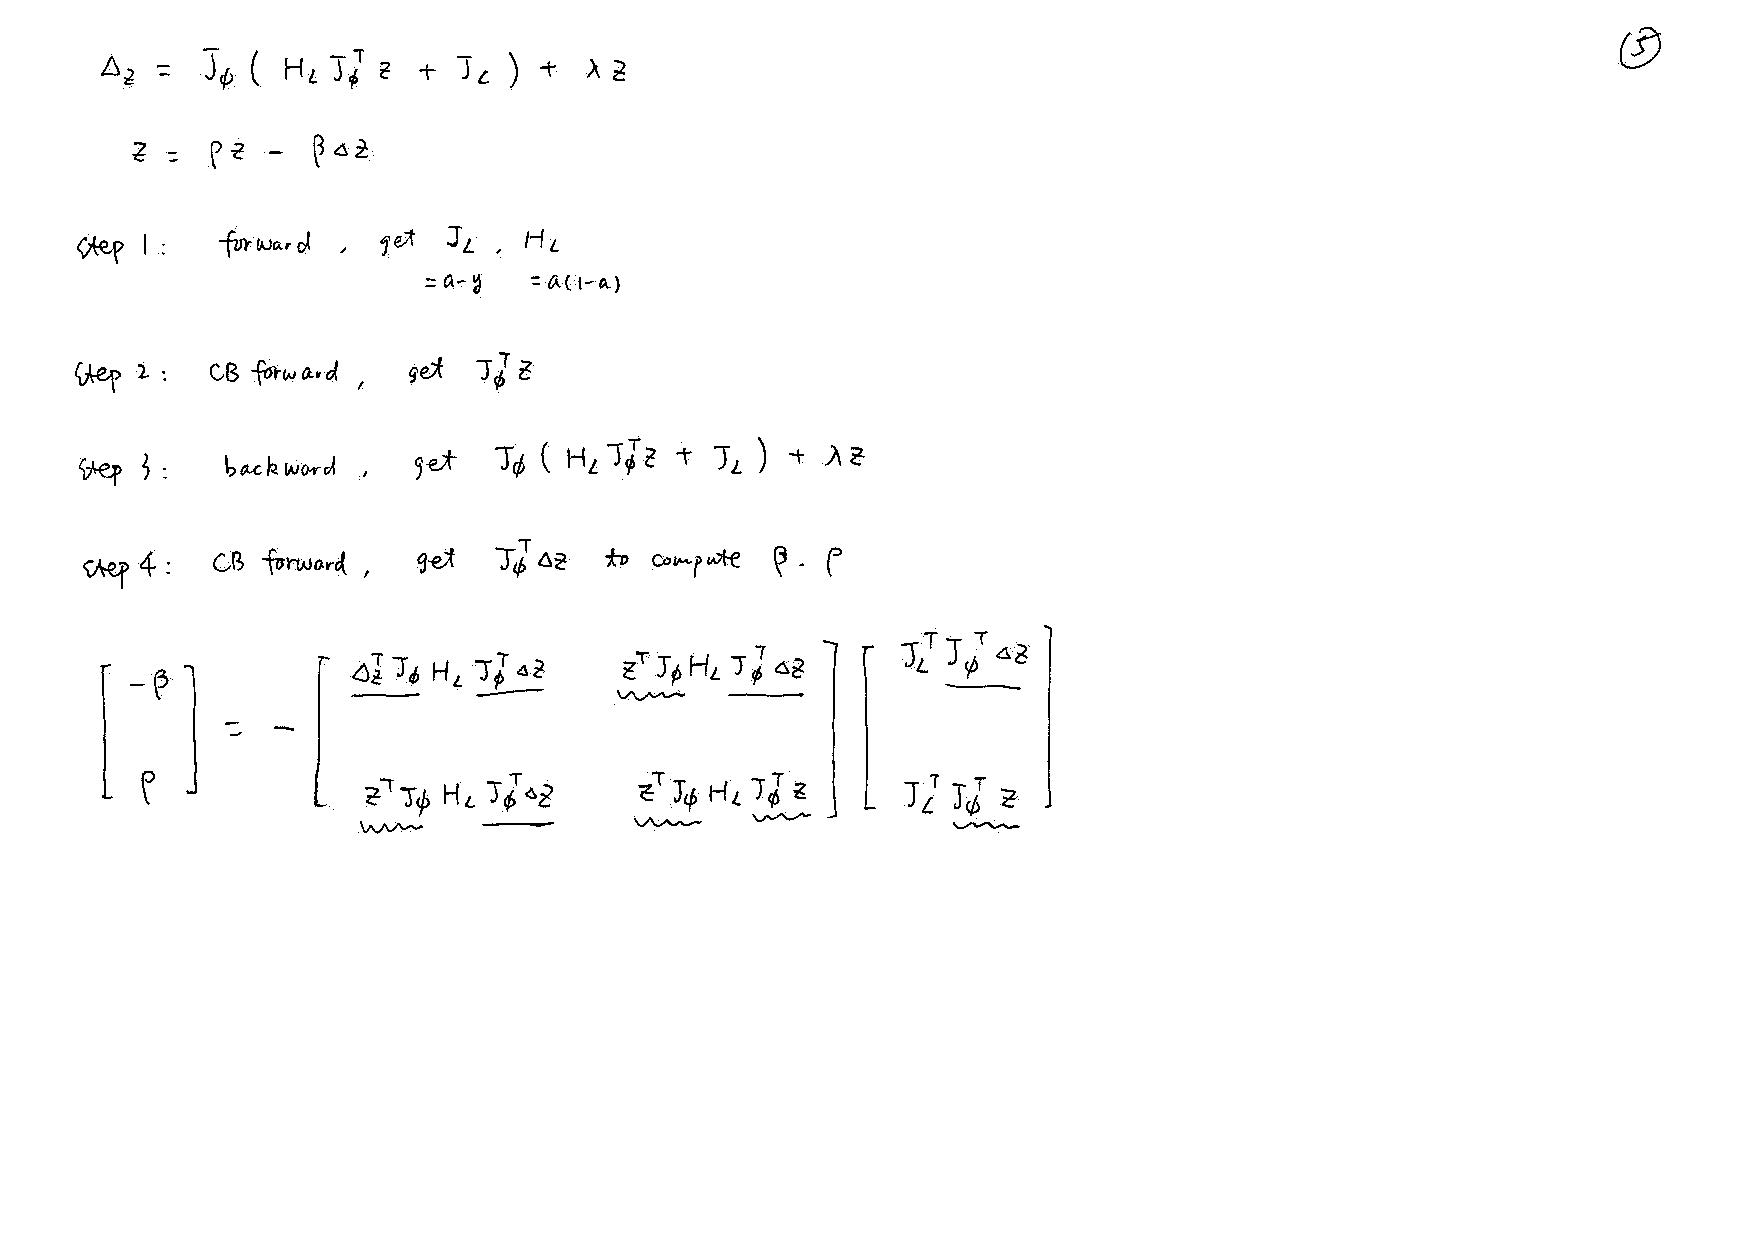 ⑤
Δ_z = J_φ ( H_L J_φ^T z + J_L ) + λ z
z = ρ z - β Δz
step 1 : forward , get J_L , H_L
= a-y = a(1-a)
step 2 : CB forward , get J_φ^T z
step 3 : backward , get J_φ ( H_L J_φ^T z + J_L ) + λ z
step 4 : CB forward , get J_φ^T Δz to compute β . ρ
[ -β ; ρ ] = - [ Δ_z^T J_φ H_L J_φ^T Δz , z^T J_φ H_L J_φ^T Δz ; z^T J_φ H_L J_φ^T Δz , z^T J_φ H_L J_φ^T z ] [ J_L^T J_φ^T Δz ; J_L^T J_φ^T z ]